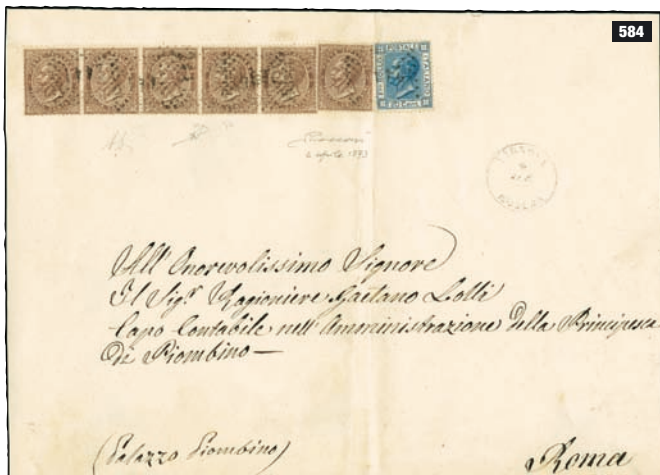 584
20 Cent
6 aprile 1893
All' Onorevolissimo Signore
Il Sigr Ragioniere Gaetano Lolli
Capo Contabile nell' Amministrazione della Principesca
di Piombino —
(Palazzo Piombino)
Roma